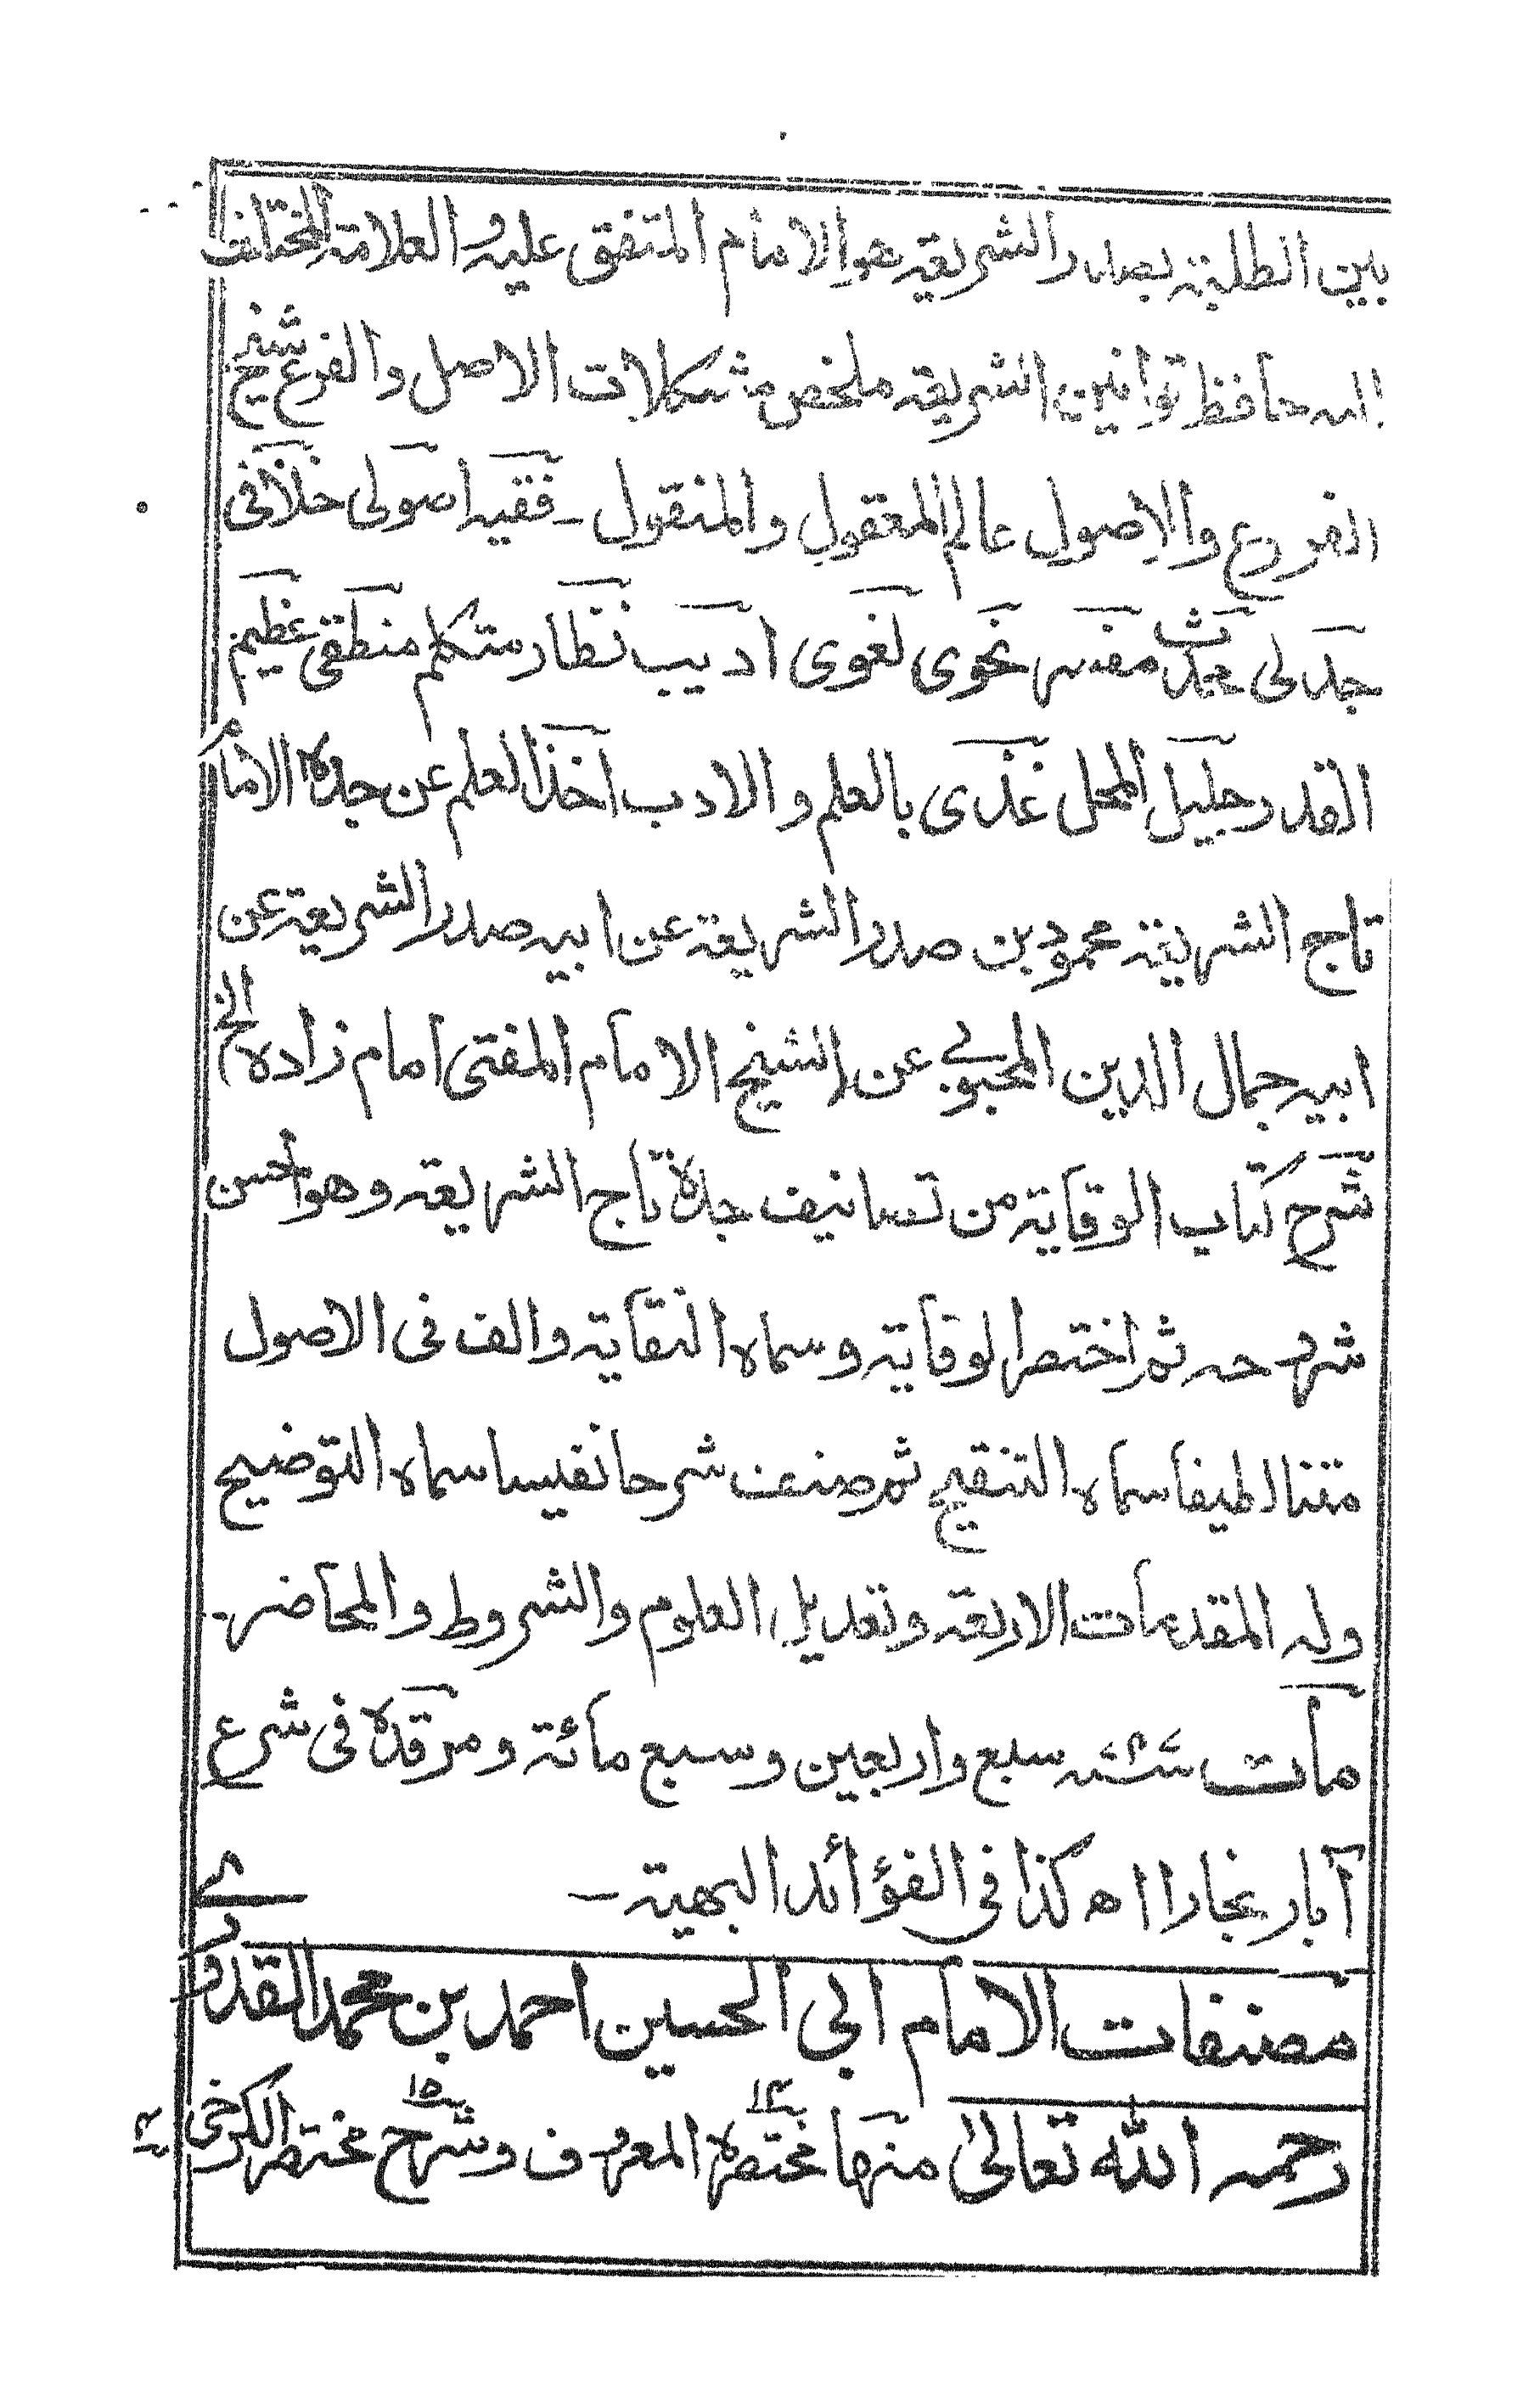 بین الطلبة بصدر الشریعه هو الامام المتفق علیه و العلامة المختلف
الیه حافظ قوانین الشریعه ملخص مشکلات الاصل والفرع شیخ
الفروع والاصول عالم المعقول والمنقول ـ فقیه اصولی خلافی
جدلی محدث مفسر نحوی لغوی ادیب نظار متکلم منطقی عظیم
القدر جلیل المحل غذی بالعلم و الادب اخذ العلم عن جده الامام
تاج الشریعة محمود بن صدر الشریعة عن ابیه صدر الشریعة عن
ابیه جمال الدین المحبوبی عن الشیخ الامام المفتی امام زاده الخ
شرح کتاب الوقایة من تصانیف جده تاج الشریعه و هو احسن
شروحه ثم اختصر الوقایة وسماه النقایة والف فی الاصول
متنا لطیفا سماه التنقیح ثم صنف شرحا نفیسا سماه التوضیح
وله المقدمات الاربعه وتعدیل العلوم والشروط والمحاضر ـ
مات سبع واربعین وسبع مائة ومرقده فی شرع
آبار بخارا اھ کذا فی الفؤائد البهیة ـ
مصنفات الامام ابی الحسین احمد بن محمد القدوری
رحمه الله تعالیٰ منها مختصره المعروف وشرح مختصر الکرخی